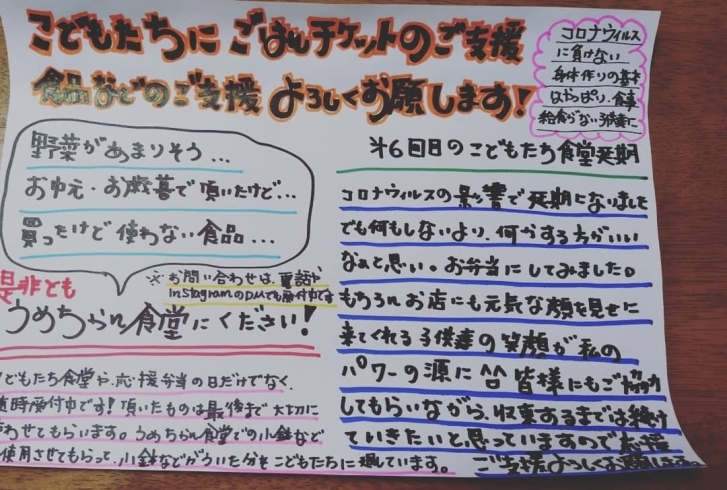 こどもたちに ごはんチケットのご支援
食品などのご支援 よろしくお願します!
コロナウィルス
に負けない
身体作りの基本
はやっぱり、食事
給食がない子供達に
野菜があまりそう...
お中元・お歳暮で頂いたけど...
買ったけど使わない食品...
是非とも
うめちゃん食堂にください!
※お問い合わせは、電話や
InstagramのDMでも受付中です
どもたち食堂や、応援弁当の日だけでなく、
随時受付中です!頂いたものは最後まで大切に
わせてもらいます。うめちゃん食堂での小鉢など
使用させてもらって、小鉢などがういた分をこどもたちに還しています。
第6回目のこどもたち食堂延期
コロナウィルスの影響で延期になりました
でも何もしないより、何かする方がいい
なぁと思い。お弁当にしてみました。
もちろんお店にも元気な顔を見せに
来てくれる子供達の笑顔が私の
パワーの源に^^ 皆様にもご協力
してもらいながら、収束するまでは続け
ていきたいと思っていますので応援
ご支援よろしくお願します。